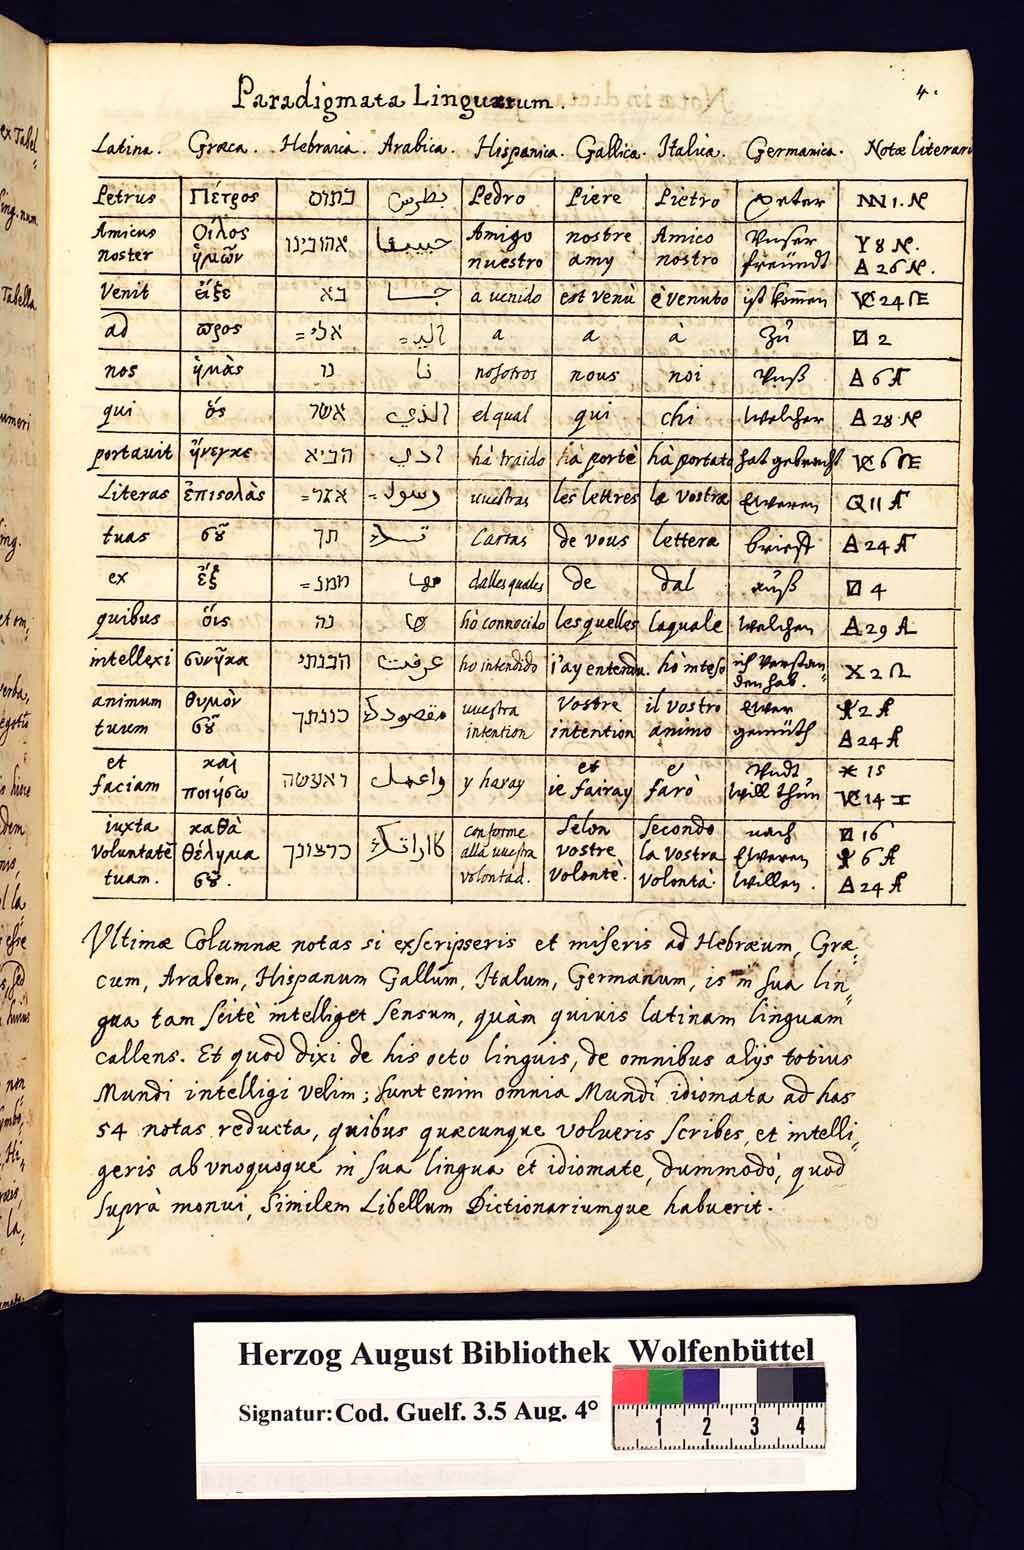 Paradigmata Linguarum.
4.
Latina. Græca. Hebraica. Arabica. Hispanica. Gallica. Italica. Germanica. Notæ literari
Petrius Πέτρος بطرس Pedro Piere Pietro Peter 1. N
Amicus Φίλος אהובינו حبيبنا Amigo nostre Amico Vnser Y 8 N.
noster ἡμῶν nuestro amy nostro freündt 26 N.
Venit בא جا a venido est venù è venuto ist kom̄en 24
ad ϖρος אלי= الي= a a à Zů 2
nos ἡμὰς נו نا nosotros nous noi Vnß 6 A
qui ὅς אשר الذي el qual qui chi Welcher 28 N
portauit ἤνεγκε הביא ادي hà traido hà portè hà portato hat gebracht 6
Literas ἐπιϛολὰς אגר= رسول= vuestras les lettres la vostra Eweren Q 11 A
tuas σȣ͂ תך Cartas de vous lettera brieff 24 A
ex ἐξ ממנ= منها dalles quales de dal auß 4
quibus οἷς נה ها hò connocido lesquelles laquale welchen 29
intellexi συνῆκα הבנתי عرفت ho intendido i'ay entendu. hò inteso ich verstan= X 2
den hab.
animum θυμὸν כונתך مقصودك vuestra Vostre il vostro Ewer 2 A
tuum σȣ͂ intention intention animo gemüth 24 A
et καὶ ואעשה واعمل y haray et e' Vndt * 15
faciam ποιήσω ie fairay farò will thůn 14
iuxta καθὰ כרצונך conforme Selon Secondo nach 16
voluntatē θέλημα alla vuestra vostre la vostra Eweren 6 A
tuam. σȣ͂. volontad. Volontè. Volontà. Willen. 24 A
Vltimæ Columnæ notas si exscripseris et miseris ad Hebræum, Græ=
cum, Arabem, Hispanum Gallum, Italum, Germanum, is in sua lin=
gua tam scitè intelliget sensum, quàm quiuis latinam linguam
callens. Et quod dixi de his octo linguis, de omnibus alijs totius
Mundi intelligi velim; sunt enim omnia Mundi idiomata ad has
54 notas reducta, quibus quæcunque volueris scribes, et intelli=
geris ab vnoquoque in sua lingua et idiomate, dummodò, quod
suprà monui, Similem Libellum Dictionariumque habuerit.
Herzog August Bibliothek Wolfenbüttel
Signatur: Cod. Guelf. 3.5 Aug. 4°
1 2 3 4